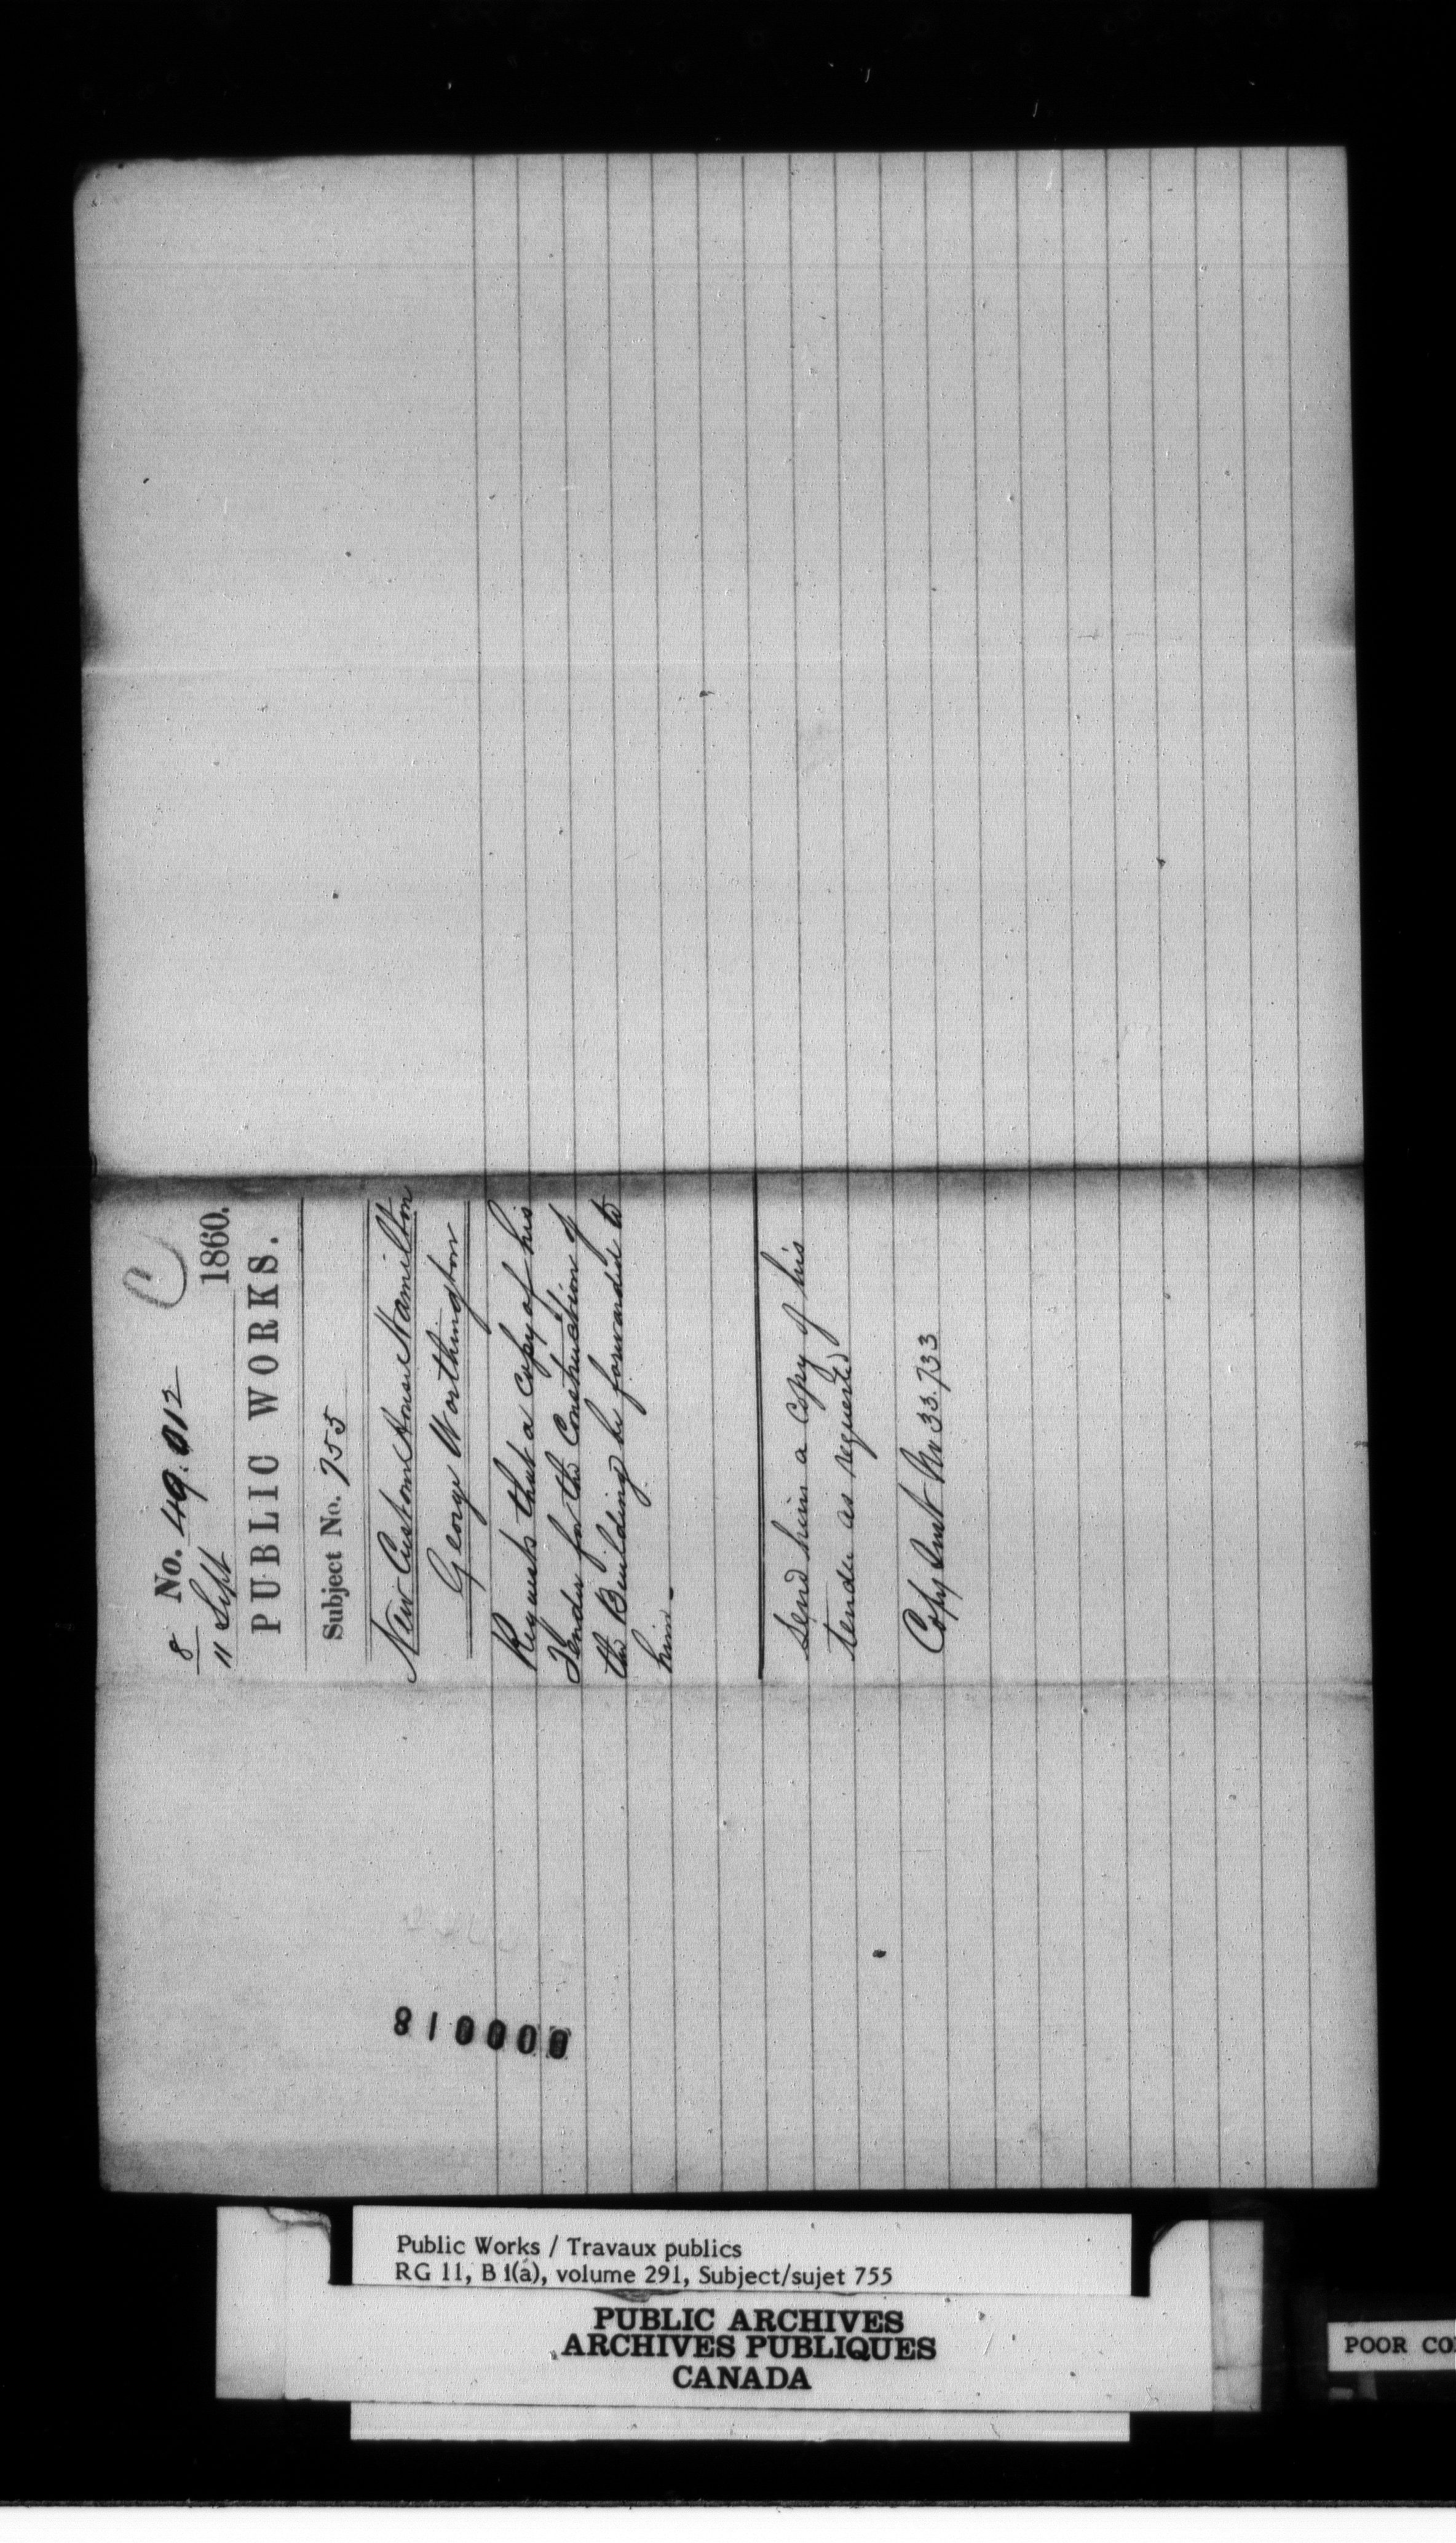 C
8 No. 49.012
11 Sept 1860.
PUBLIC WORKS.
Subject No. 755
New Custom House Hamilton
George Worthington
Requests that a copy of his
Tender for the Construction of
the Building be forwarded to
him -
Send him a copy of his
tender as requested
Copy Sent No 33.733
000018
Public Works / Travaux publics
RG 11, B 1(a), volume 291, Subject/sujet 755
PUBLIC ARCHIVES
ARCHIVES PUBLIQUES
CANADA
POOR CO